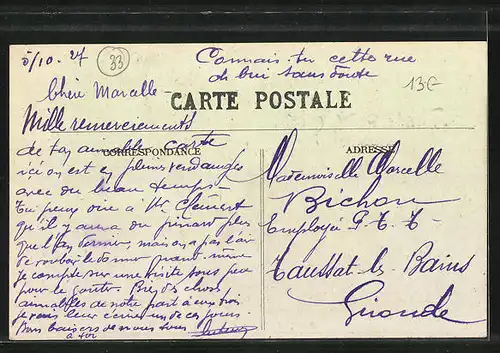 5/10.27
33
Connais-tu cette rue
de bui sans doute
13€
Chère Marcelle
CARTE POSTALE
Mille remerciements
de ton aimable carte
CORRESPONDANCE
ADRESSE
ici on est en pleines vendanges
avec du beau temps
Tu peux dire à Mr Clément
qu'il y aura du pinard plus
que l'an dernier, mais on a pas l'air
de vouloir le donner quand même
je compte sur une visite sous peu
pour le goûter. Bien des choses
aimables de notre part à eux trois
je vais leur écrire un de ces jours.
Bons baisers de nous tous
à toi
Mademoiselle Marcelle
Bichon
Employée P.T.T.
Taussat-les-Bains
Gironde